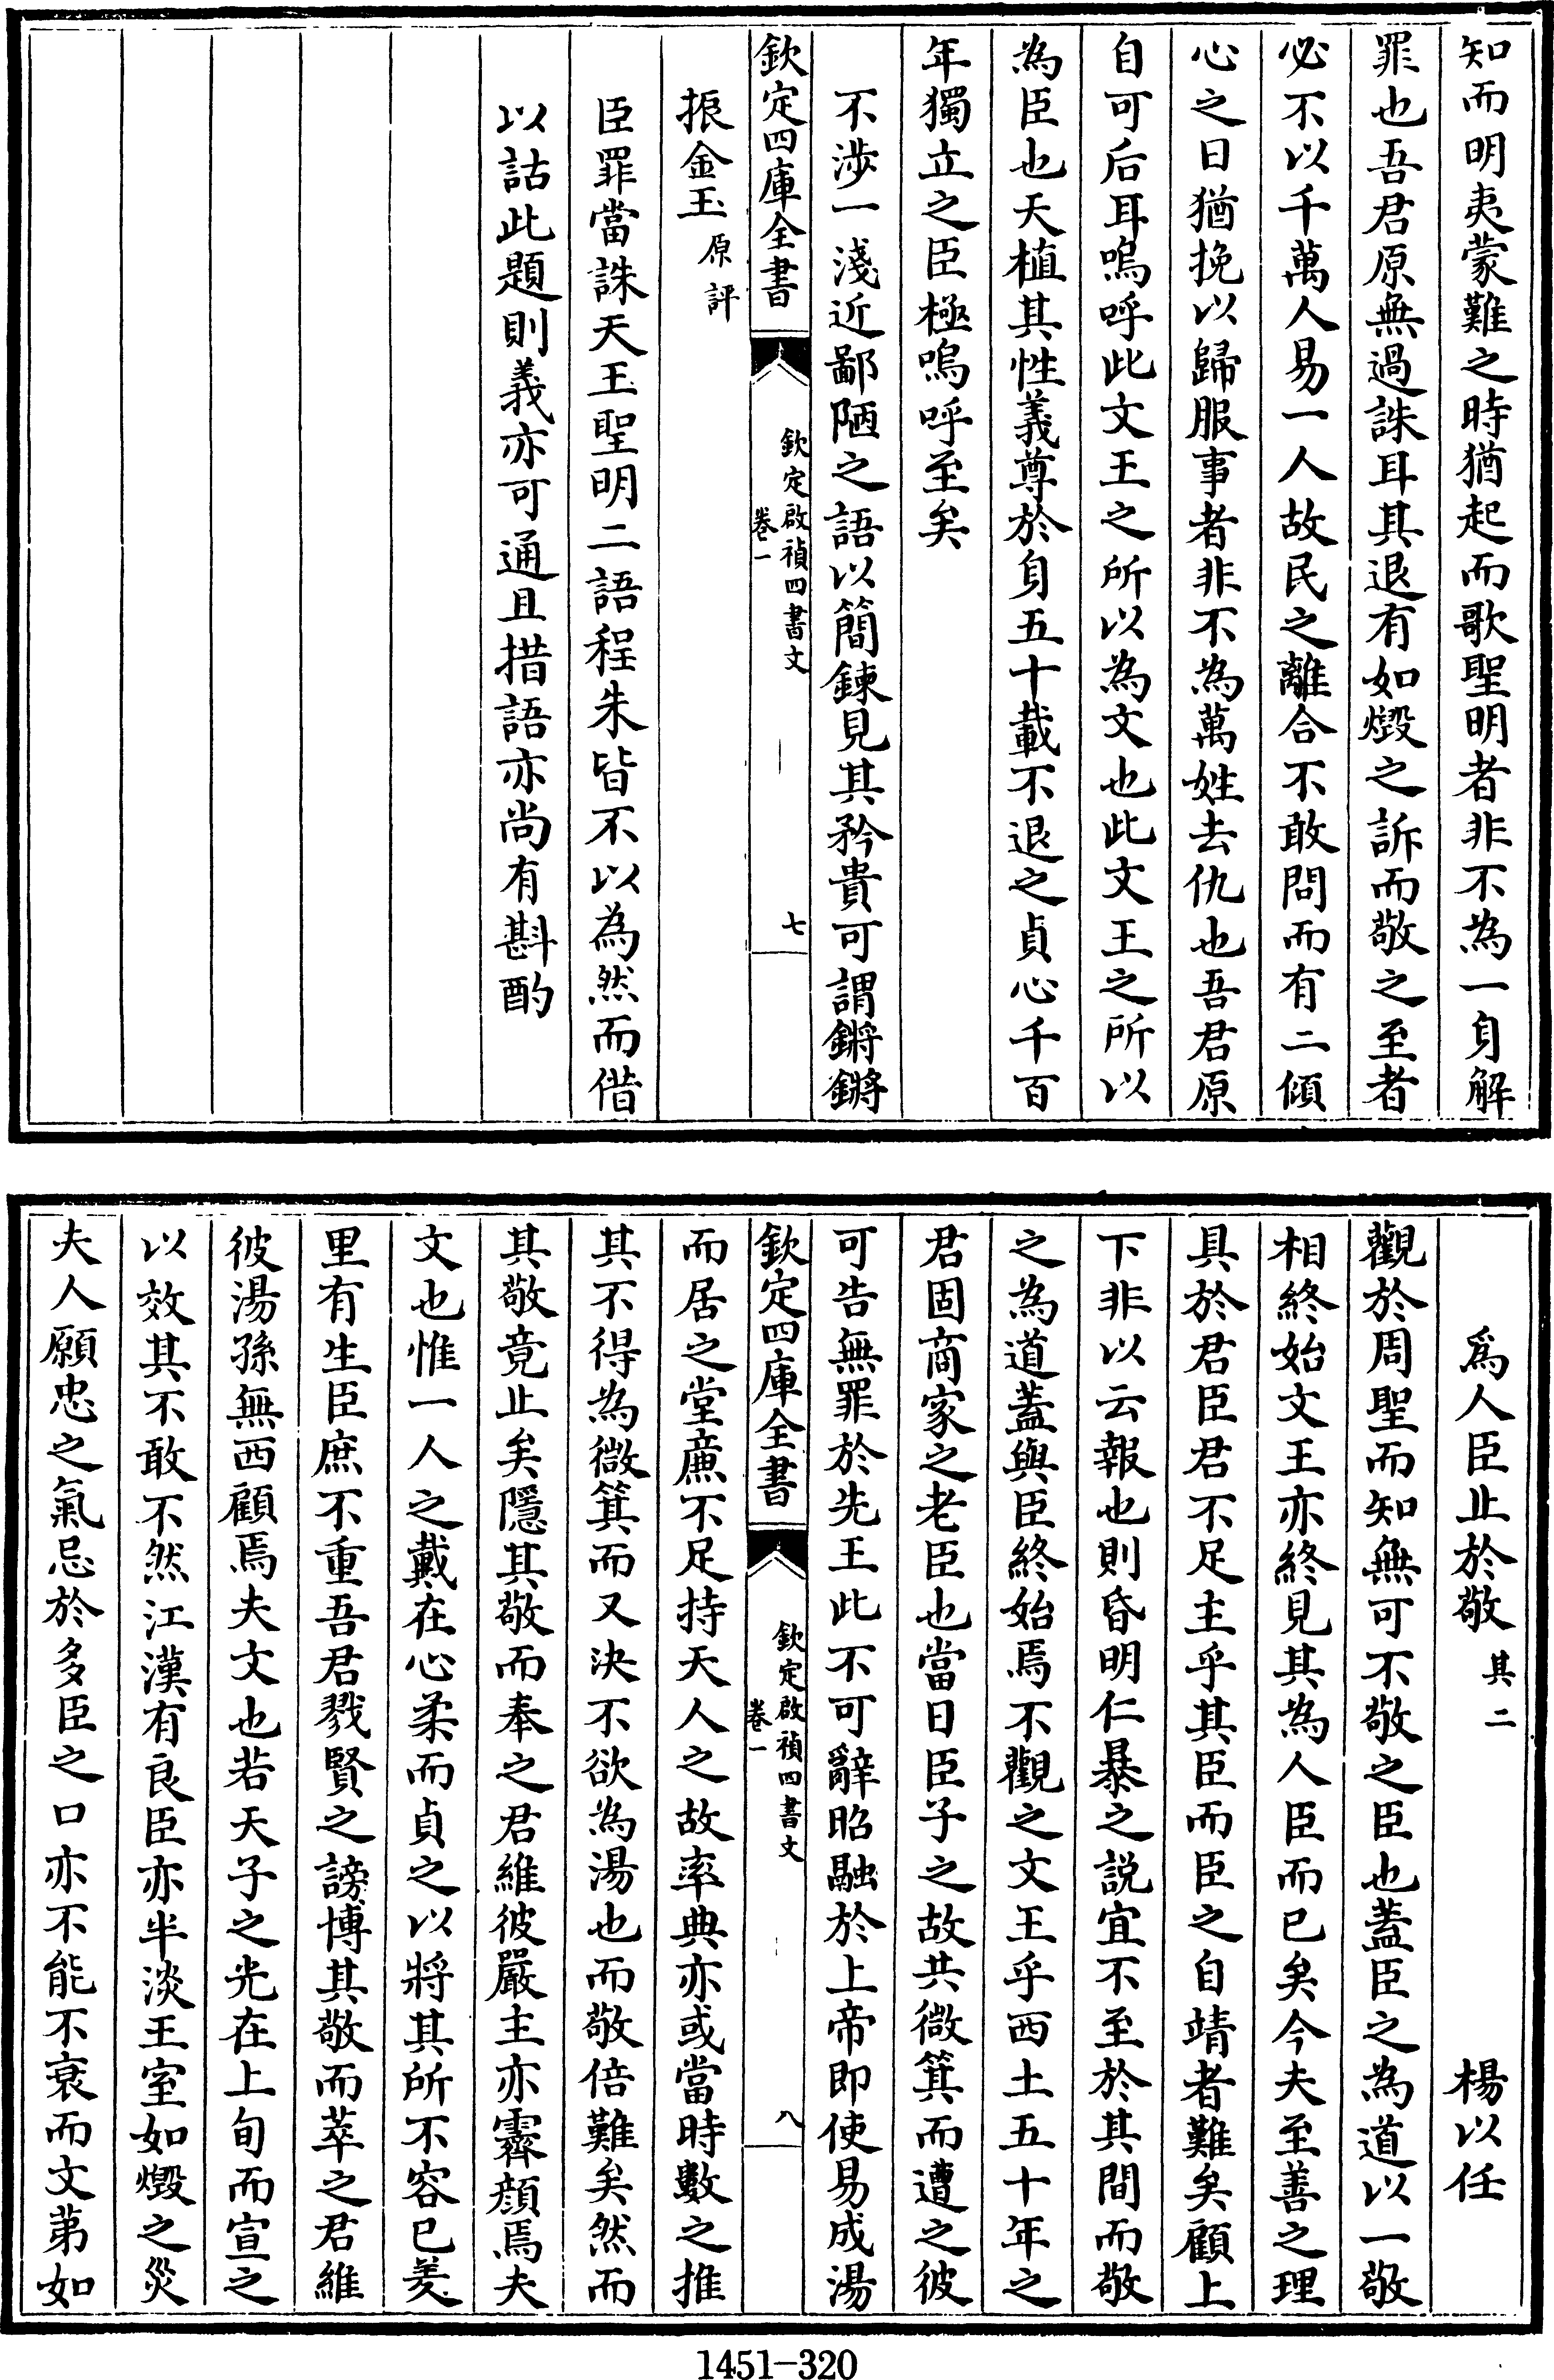 知而明夷蒙難之時猶起而歌聖明者非不為一身解
罪也吾君原無過誅耳其退有如燬之訴而敬之至者
必不以千萬人易一人故民之離合不敢問而有二傾
心之日猶挽以歸服事者非不為萬姓去仇也吾君原
自可后耳嗚呼此文王之所以為文也此文王之所以
為臣也天植其性義尊於身五十載不退之貞心千百
年獨立之臣極嗚呼至矣
不涉一淺近鄙陋之語以簡鍊見其矜貴可謂鏘鏘
欽定四庫全書
欽定啟禎四書文
卷一
七
振金玉原評
臣罪當誅天王聖明二語程朱皆不以為然而借
以詁此題則義亦可通且措語亦尚有斟酌
為人臣止於敬其二
楊以任
觀於周聖而知無可不敬之臣也蓋臣之為道以一敬
相終始文王亦終見其為人臣而已矣今夫至善之理
具於君臣君不足主乎其臣而臣之自靖者難矣顧上
下非以云報也則昏明仁暴之説宜不至於其間而敬
之為道蓋與臣終始焉不觀之文王乎西土五十年之
君固商家之老臣也當日臣子之故共微箕而遭之彼
可告無罪於先王此不可辭昭融於上帝即使易成湯
欽定四庫全書
欽定啟禎四書文
卷一
八
而居之堂廉不足持天人之故率典亦或當時數之推
其不得為微箕而又決不欲為湯也而敬倍難矣然而
其敬竟止矣隱其敬而奉之君維彼嚴主亦霽顏焉夫
文也惟一人之戴在心柔而貞之以將其所不容已羑
里有生臣庶不重吾君戮賢之謗博其敬而萃之君維
彼湯孫無西顧焉夫文也若天子之光在上旬而宣之
以效其不敢不然江漢有良臣亦半淡王室如燬之災
夫人願忠之氣忌於多臣之口亦不能不衰而文苐如
1451-320